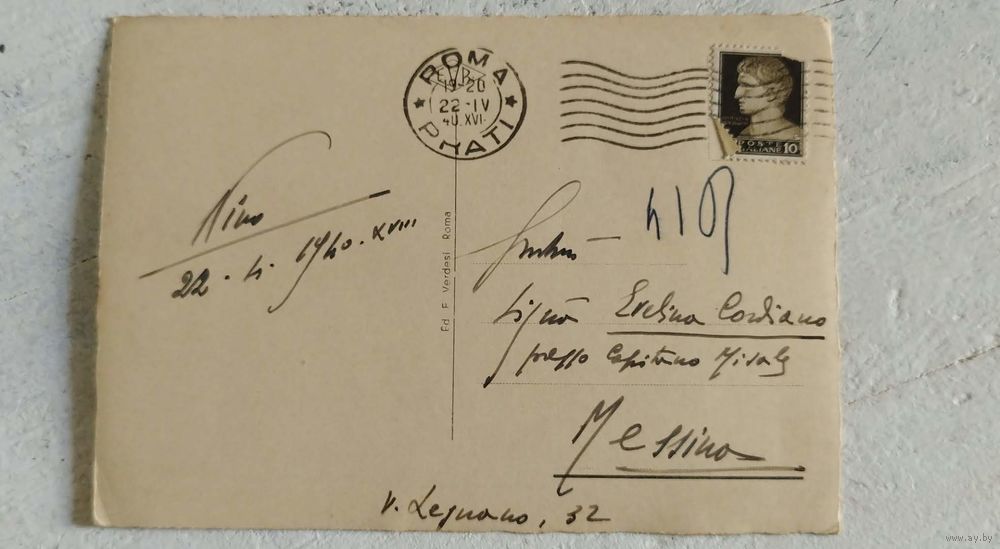 ROMA
19-20
22-IV
40.XVI
PRATI
POSTE
ITALIANE 10
Nino
22 . 4 . 1940 . XVIII
Ed. F. Verdesi Roma
Sig.na Evelina Cordiano
presso Capitano
Messina
V. Legnano, 32
www.ay.by